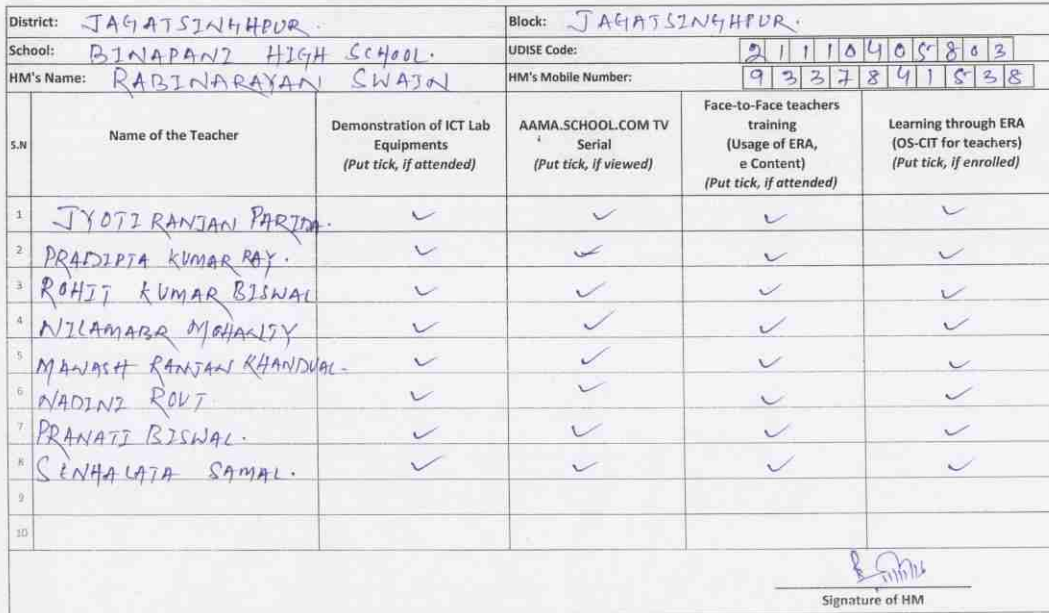 District: JAGATSINGHPUR. Block: JAGATSINGHPUR.
School: BINAPANI HIGH SCHOOL. UDISE Code: 21110405803
HM's Name: RABINARAYAN SWAIN HM's Mobile Number: 9337841538
S.N Name of the Teacher Demonstration of ICT Lab Equipments (Put tick, if attended) AAMA.SCHOOL.COM TV Serial (Put tick, if viewed) Face-to-Face teachers training (Usage of ERA, e Content) (Put tick, if attended) Learning through ERA (OS-CIT for teachers) (Put tick, if enrolled)
1 JYOTI RANJAN PARIDA. ✓ ✓ ✓ ✓
2 PRADIPTA KUMAR RAY. ✓ ✓ ✓ ✓
3 ROHIT KUMAR BISWAL ✓ ✓ ✓ ✓
4 NILAMABR MOHANTY ✓ ✓ ✓ ✓
5 MANASH RANJAN KHANDUAL. ✓ ✓ ✓ ✓
6 NADINI ROUT ✓ ✓ ✓ ✓
7 PRANATI BISWAL. ✓ ✓ ✓ ✓
8 SENHALATA SAMAL. ✓ ✓ ✓ ✓
9
10
Signature of HM